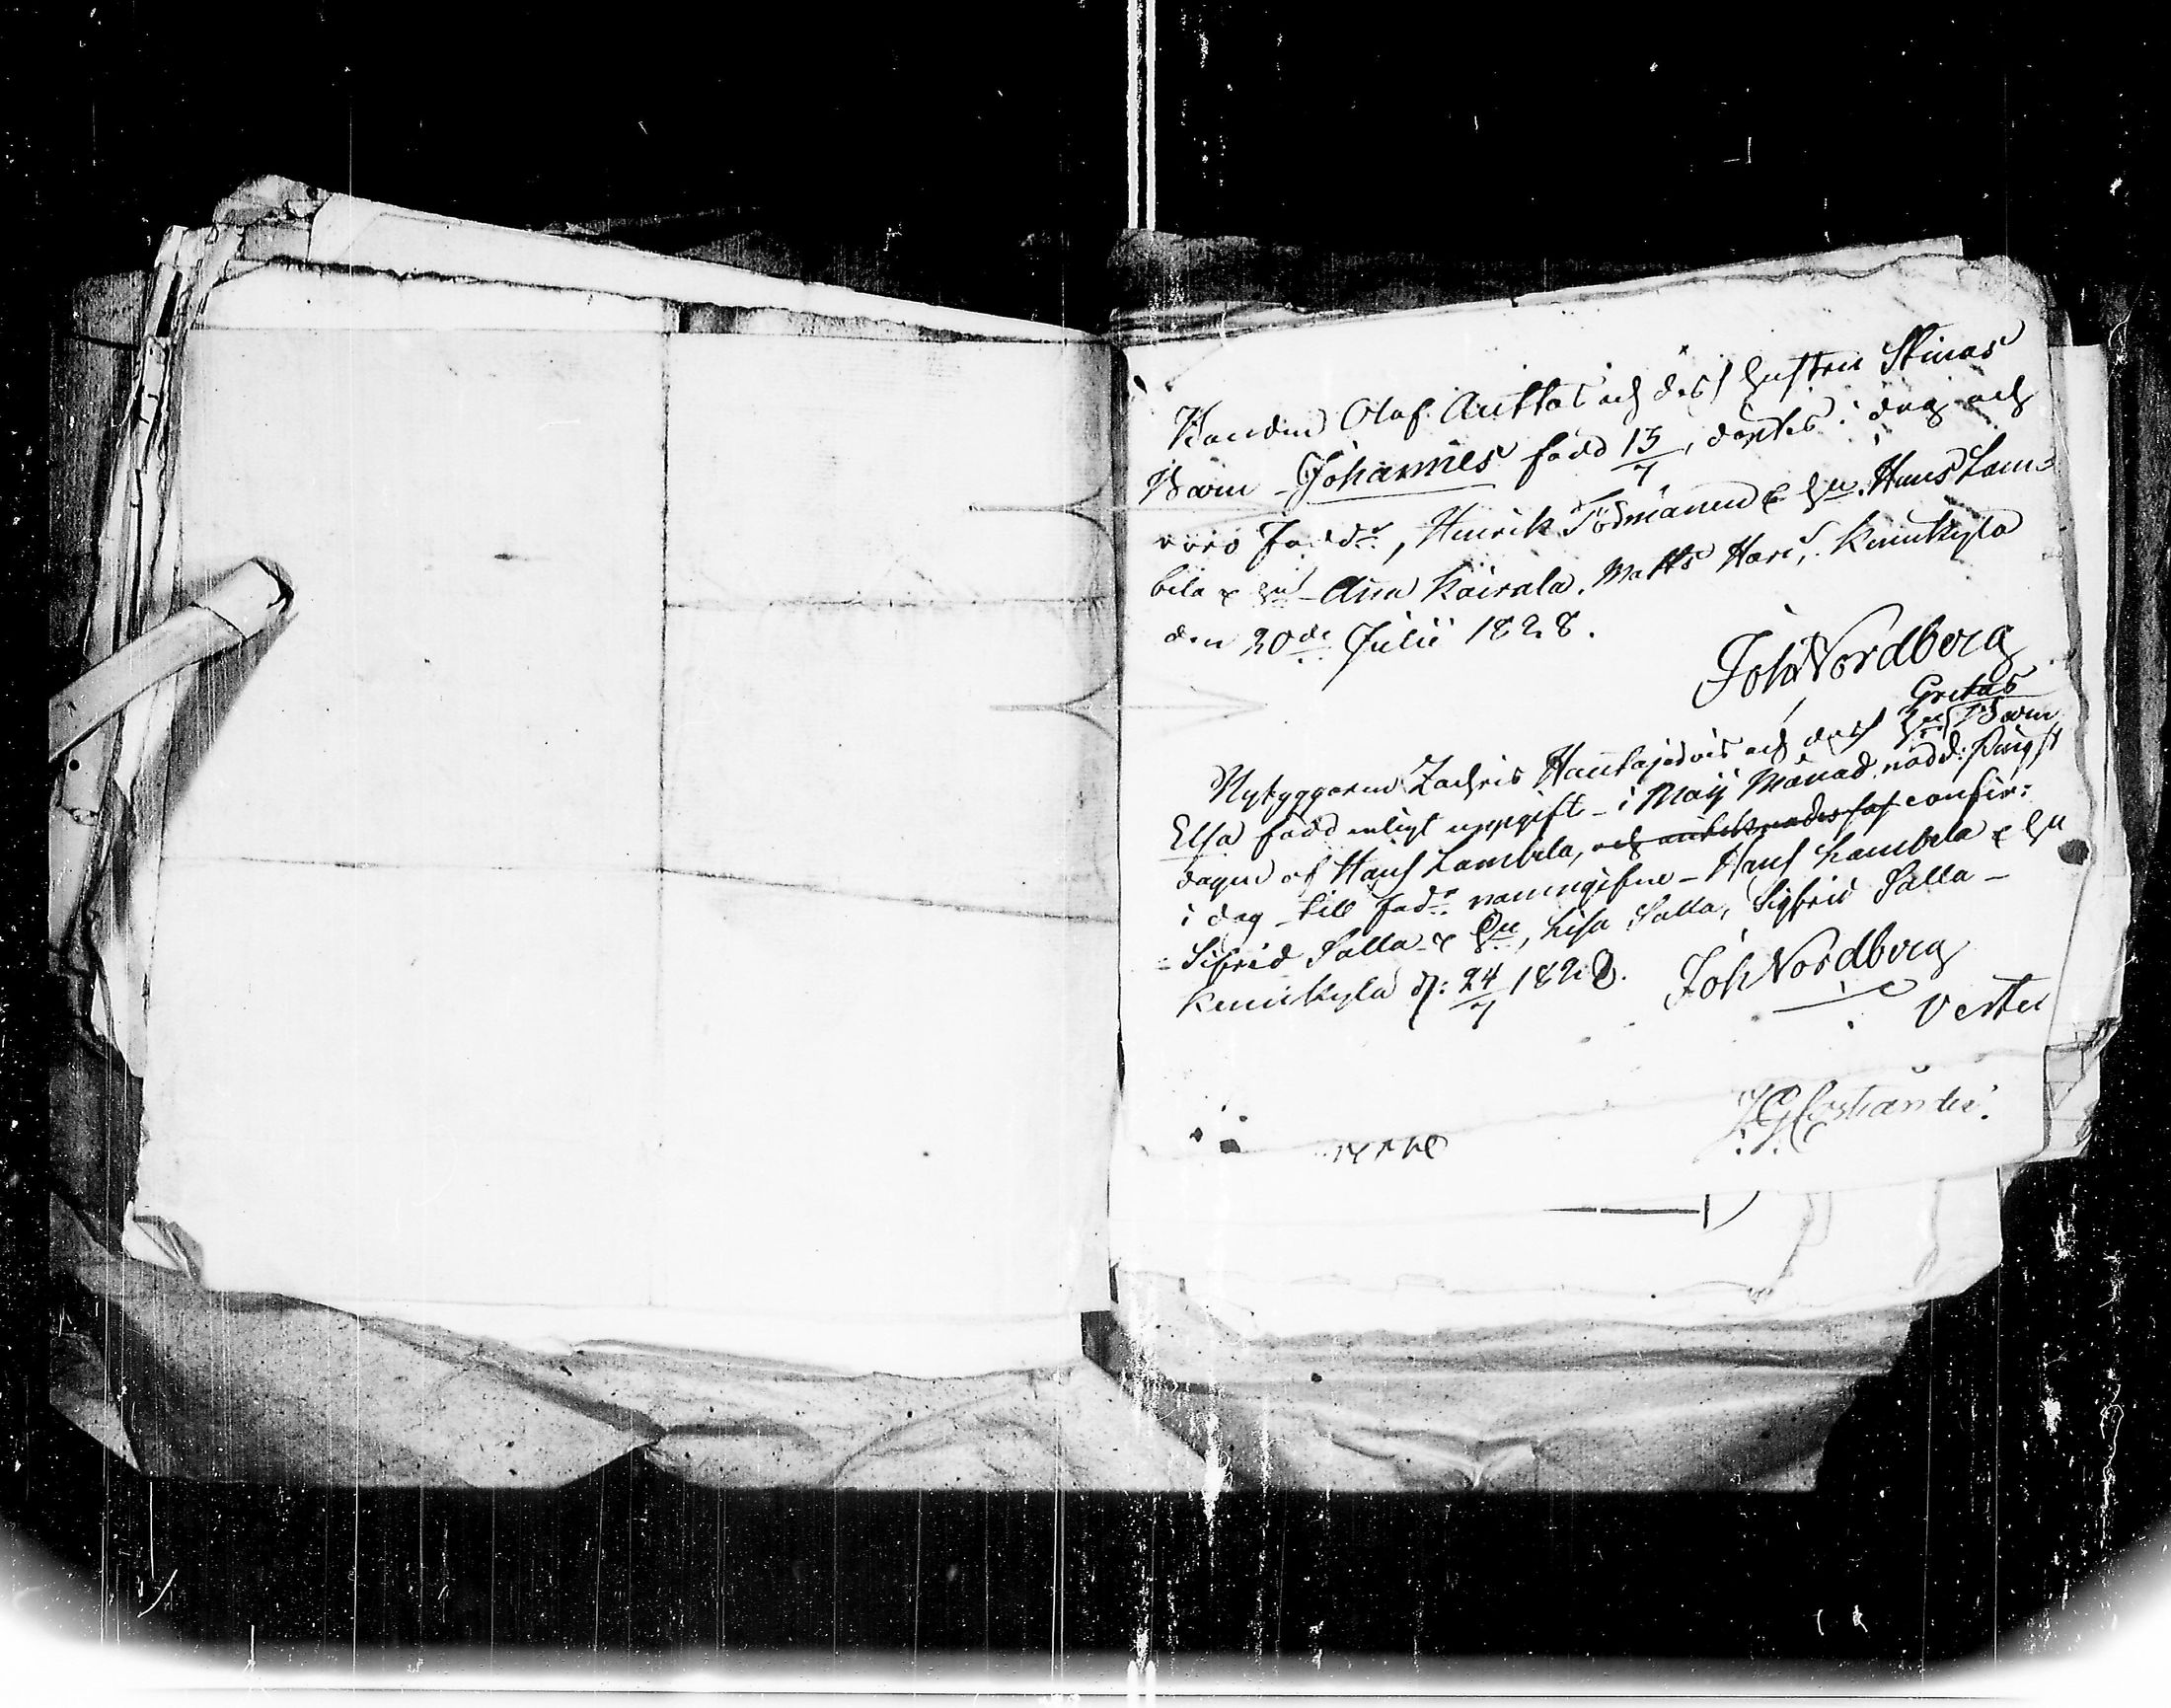 Bonden Olof Auttos och dess hustru Stinas
Barn Johannes född 13/7, döptes i dag och
voro Faddr, Henrik Törmänen & hu. Hans Lam-
bela & hu Ana Kairala, Matts Hari, Kemikyla
den 20de Julii 1828.
Joh Nordberg
Gretas
Nybyggaren Zachris Hautajärvis och dess hus Barn
Elsa född enligt uppgift i Maij Månad, nödd. Pingst
dagen af Hans Lambela, och confir:
i dag till fadr namngifne - Hans Lambela & hu
Sifrid Salla & hu, Lisa Salla, Sigfrid Salla -
Kemikyla d: 24/7 1828. Joh Nordberg
Verte